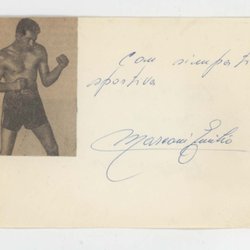 Con simpati
sportiva
Marconi Emilio